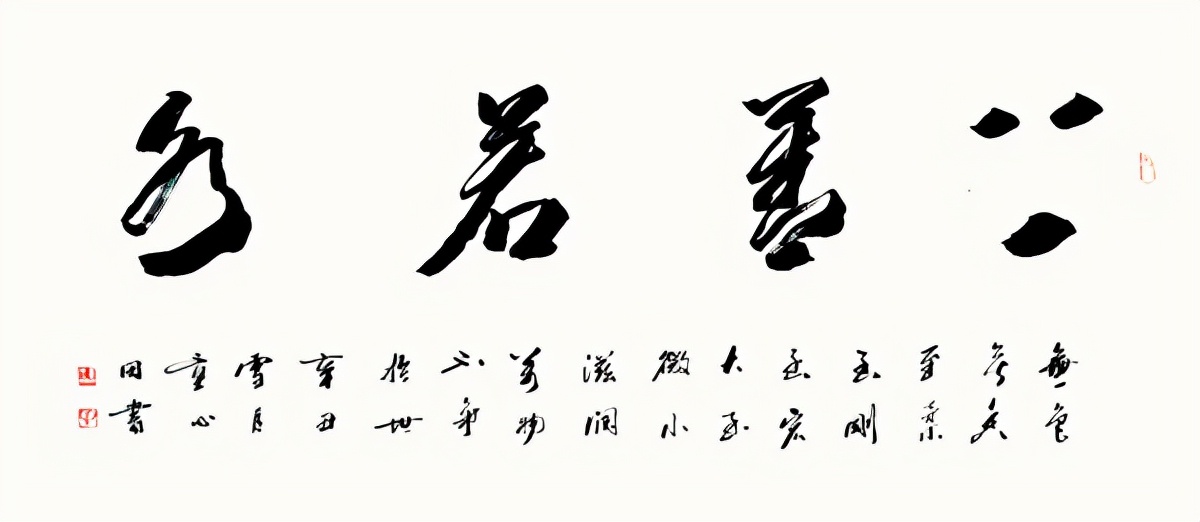 上善若水
無色
無
至柔
至剛
至宏
大至
微小
滋潤
萬物
不爭
於世
辛丑
雪月
童心
田書